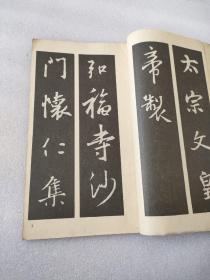 太宗文皇
帝製
弘福寺沙
门懷仁集